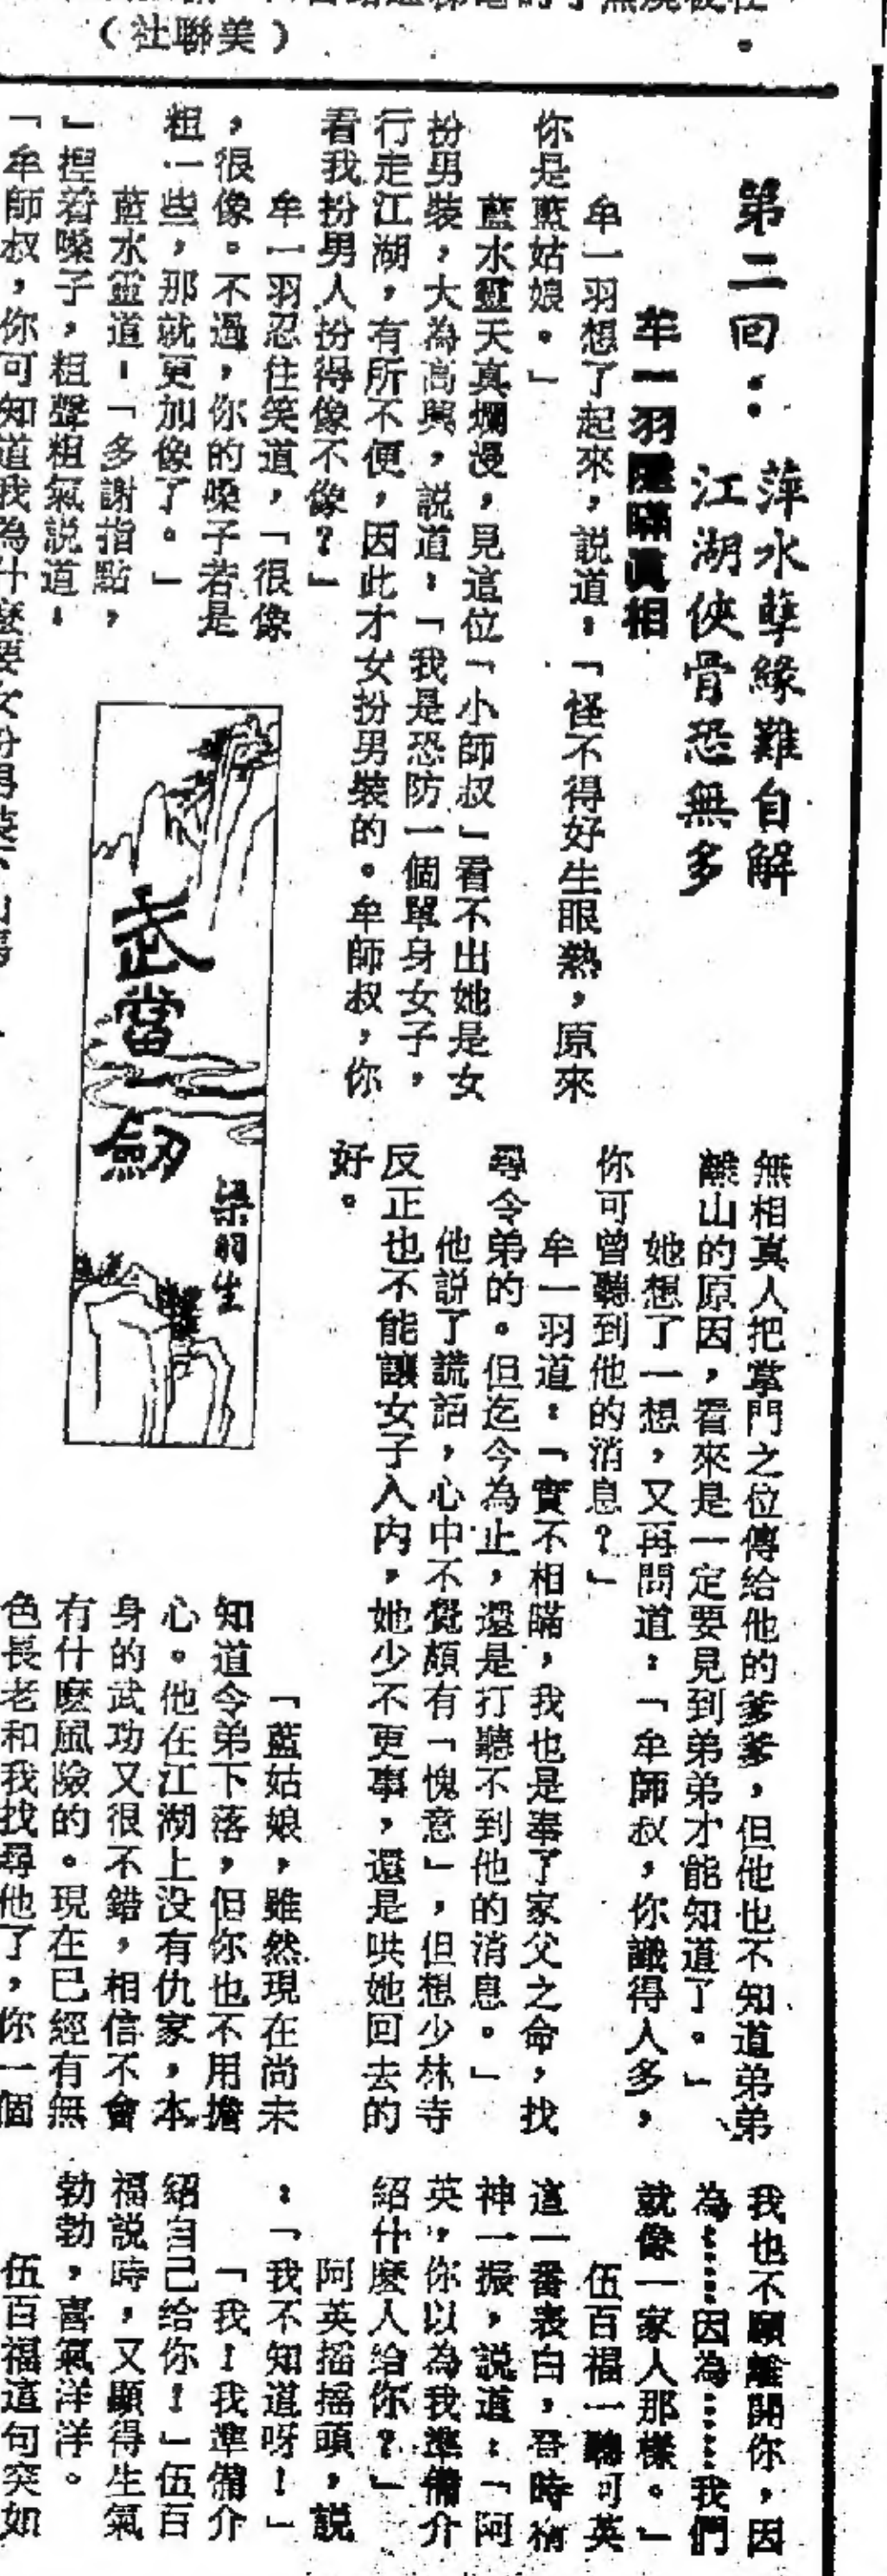 （美聯社）
第二回：
萍水孽緣難自解
江湖俠骨恐無多
牟一羽隱瞞真相
牟一羽想了起來，説道：「怪不得好生眼熟，原來
你是藍姑娘。」
藍水靈天真爛漫，見這位「小師叔」看不出她是女
扮男裝，大為高興，説道：「我是恐防一個單身女子，
行走江湖，有所不便，因此才女扮男裝的。牟師叔，你
看我扮男人扮得像不像？」
牟一羽忍住笑道，「很像
，很像。不過，你的嗓子若是
粗一些，那就更加像了。」
藍水靈道：「多謝指點，
」捏着嗓子，粗聲粗氣説道：
「牟師叔，你可知道我為什麼要女扮男裝
武當一劍
梁羽生
無相真人把掌門之位傳給他的爹爹，但他也不知道弟弟
離山的原因，看來是一定要見到弟弟才能知道了。」
她想了一想，又再問道：「牟師叔，你識得人多，
你可曾聽到他的消息？」
牟一羽道：「實不相瞞，我也是奉了家父之命，找
尋令弟的。但迄今為止，還是打聽不到他的消息。」
他説了謊話，心中不覺頗有「愧意」，但想少林寺
反正也不能讓女子入内，她少不更事，還是哄她回去的
好。
「藍姑娘，雖然現在尚未
知道令弟下落，但你也不用擔
心。他在江湖上没有仇家，本
身的武功又很不錯，相信不會
有什麽風險的。現在已經有無
色長老和我找尋他了，你一個
我也不願離開你，因
為……因為……我們
就像一家人那樣。」
伍百福一聽阿英
這一番表白，登時精
神一振，説道：「阿
英，你以為我準備介
紹什麽人給你？」
阿英摇摇頭，説
：「我不知道呀！」
「我！我準備介
紹自己给你！」伍百
福説時，又顯得生氣
勃勃，喜氣洋洋。
伍百福這句突如